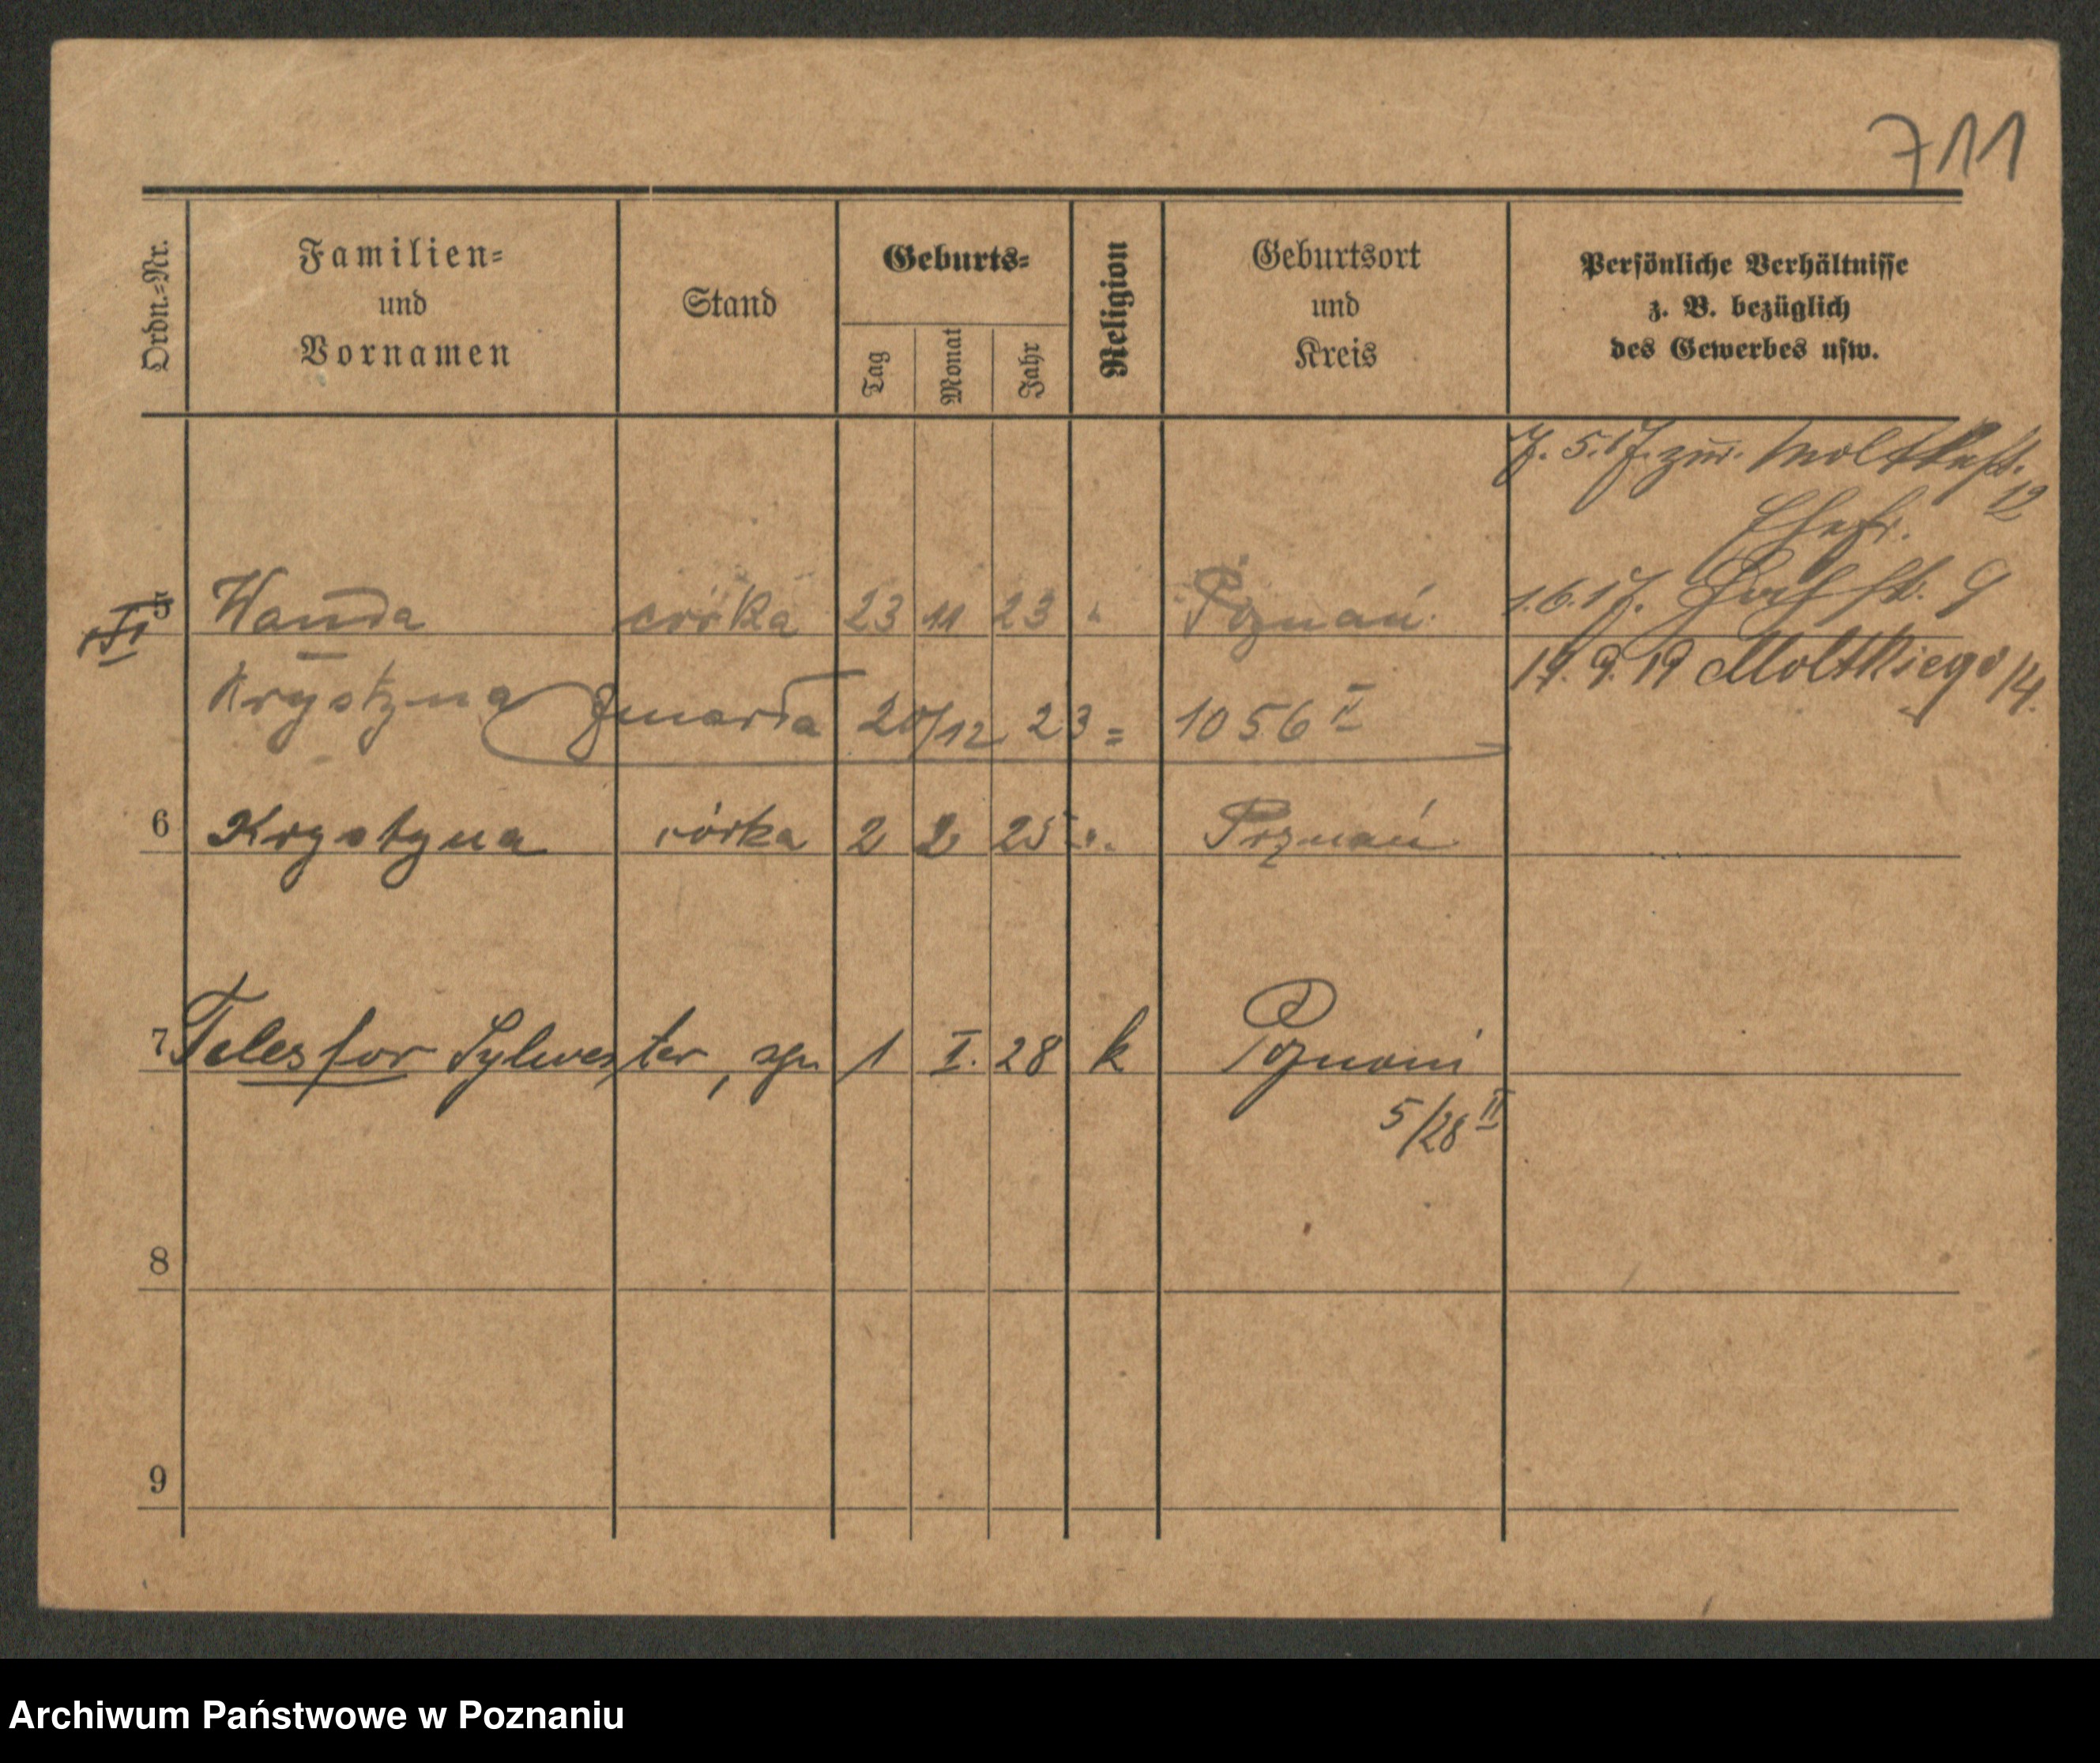 711
Ordn.=Nr.
Familien=
und
Vornamen
Stand
Geburts=
Tag
Monat
Jahr
Religion
Geburtsort
und
Kreis
Persönliche Verhältnisse
z. B. bezüglich
des Gewerbes usw.
7. 5. 17. zur. Moltkest. 12
Ehefr.
5 Wanda córka 23 11 23 " Poznań
1.6.17. 9
19. 9. 19 Moltkiego 14.
Krystyna Zmarła 20/12 23 = 1056 II
6 Krystyna córka 2 2 25 " Poznań
7 Telesfor Sylwester, syn 1 I. 28 k Poznań
5/28 II
8
9
Archiwum Państwowe w Poznaniu